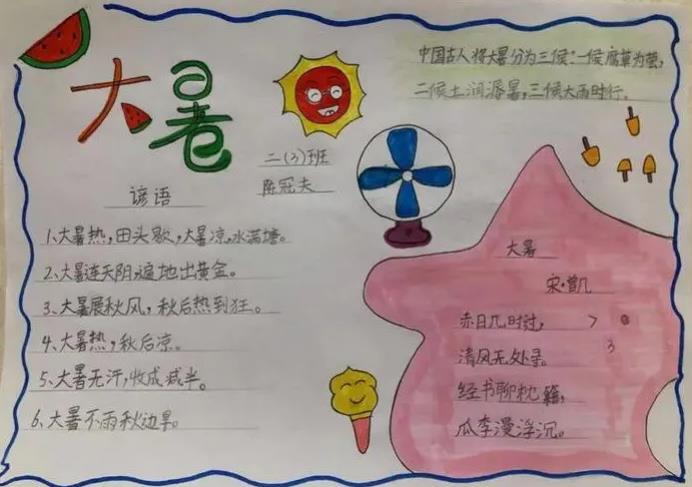 大暑
二(3)班
陈冠夫
谚语
1、大暑热,田头歇,大暑凉,水满塘。
2、大暑连天阴,遍地出黄金。
3、大暑展秋风,秋后热到狂。
4、大暑热,秋后凉。
5、大暑无汗,收成减半。
6、大暑不雨秋边旱。
中国古人将大暑分为三候:一候腐草为萤,
二候土润溽暑,三候大雨时行。
大暑
宋·曾几
赤日几时过,
清风无处寻。
经书聊枕籍,
瓜李漫浮沉。